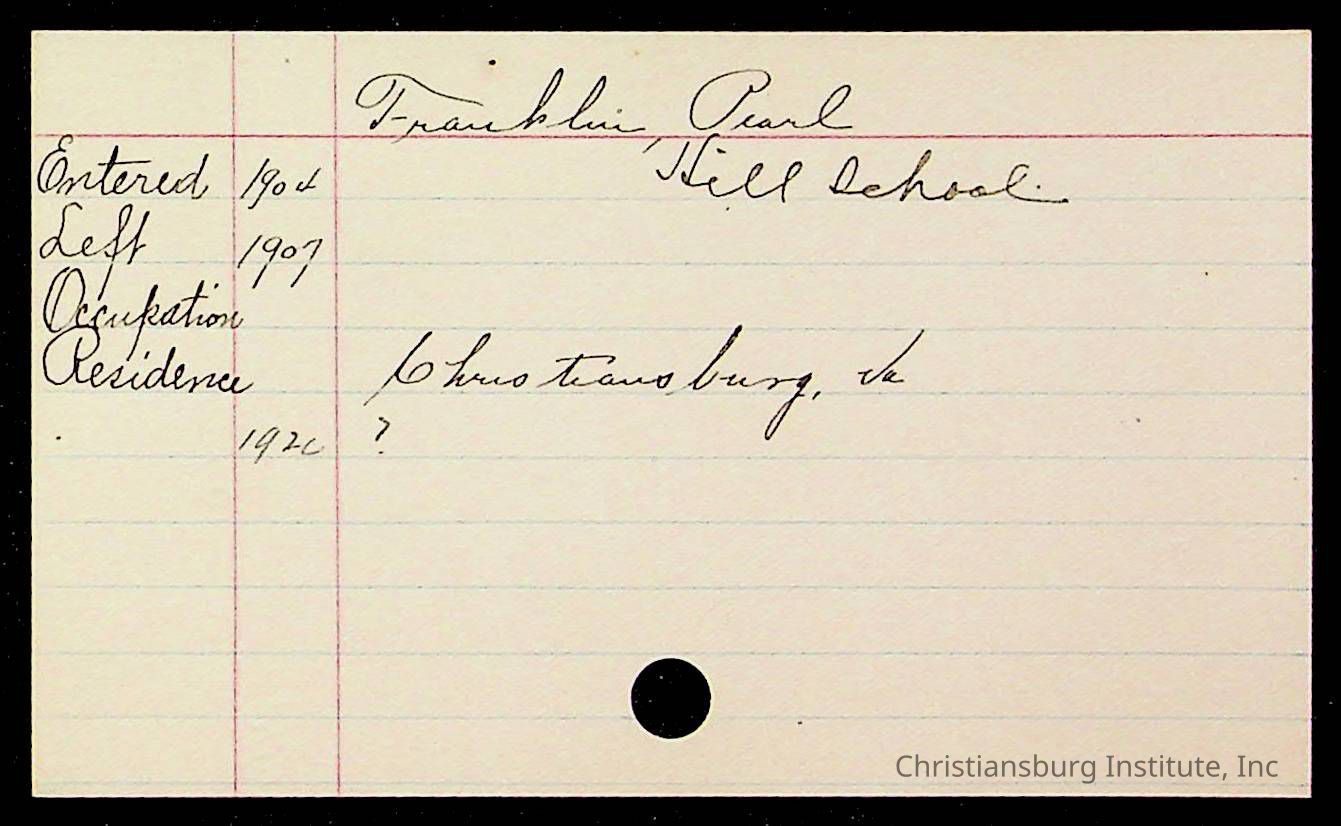 Franklin, Pearl
Hill School.
Entered 1904
Left 1907
Occupation
Residence Christiansburg, Va
1920 ?
Christiansburg Institute, Inc